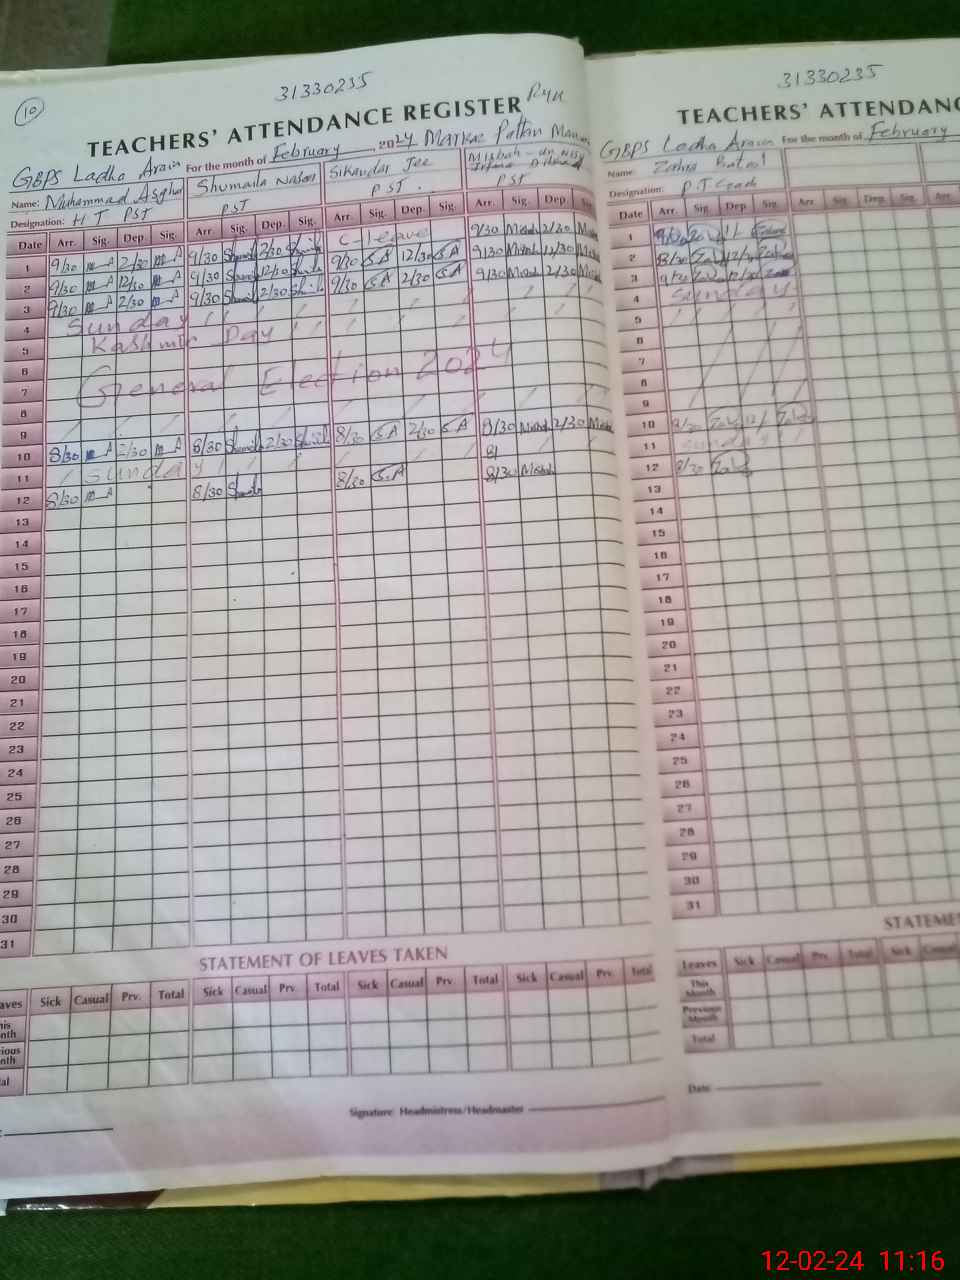 10
31330235
TEACHERS' ATTENDANCE REGISTER
GBPS Ladha Arain For the month of February, 2024 Markaz Pattin
Name: Muhammad Asghar Shumaila Sikandar Misbah-un-Nisa
Designation: H T PST PST PST. PST
Date Arr. Sig. Dep Sig. Arr. Sig. Dep Sig. Arr. Sig. Dep Sig. Arr. Sig. Dep
1 9/30 m A 2/30 m A 9/30 2/30 C-leave 9/30 Misbah 2/30
2 9/30 m A 12/30 m A 9/30 12/30 9/30 S A 12/30 S A 9/30 Misbah 12/30
3 9/30 m A 2/30 m A 9/30 2/30 9/30 S A 2/30 S A 9/30 Misbah 2/30
4 Sunday
5 Kashmir Day
6
7 General Election 2024
8
9
10 8/30 m A 2/30 m A 8/30 2/30 8/30 S A 2/30 S A 8/30 Misbah 2/30
11 Sunday 8/
12 8/30 m A 8/30 8/30 S.A 8/30 Misbah
13
14
15
16
17
18
19
20
21
22
23
24
25
26
27
28
29
30
31
STATEMENT OF LEAVES TAKEN
aves Sick Casual Prv. Total Sick Casual Prv. Total Sick Casual Prv. Total Sick Casual Prv. Total
his nth
ious nth
al
Signature: Headmistress/Headmaster
31330235
TEACHERS' ATTENDANC
GBPS Ladha Arain For the month of February
Name: Zahra Batool
Designation:
Date Arr. Sig. Dep Sig. Arr. Sig. Dep. Sig. Arr.
1
2 8/30
3 9/30 12/30
4 Sunday
5
6
7
8
9
10
11 Sunday
12 8/30
13
14
15
16
17
18
19
20
21
22
23
24
25
26
27
28
29
30
31
STATEME
Leaves Sick Casual Prv. Total Sick Casual
This Month
Previous Month
Total
Date
12-02-24 11:16